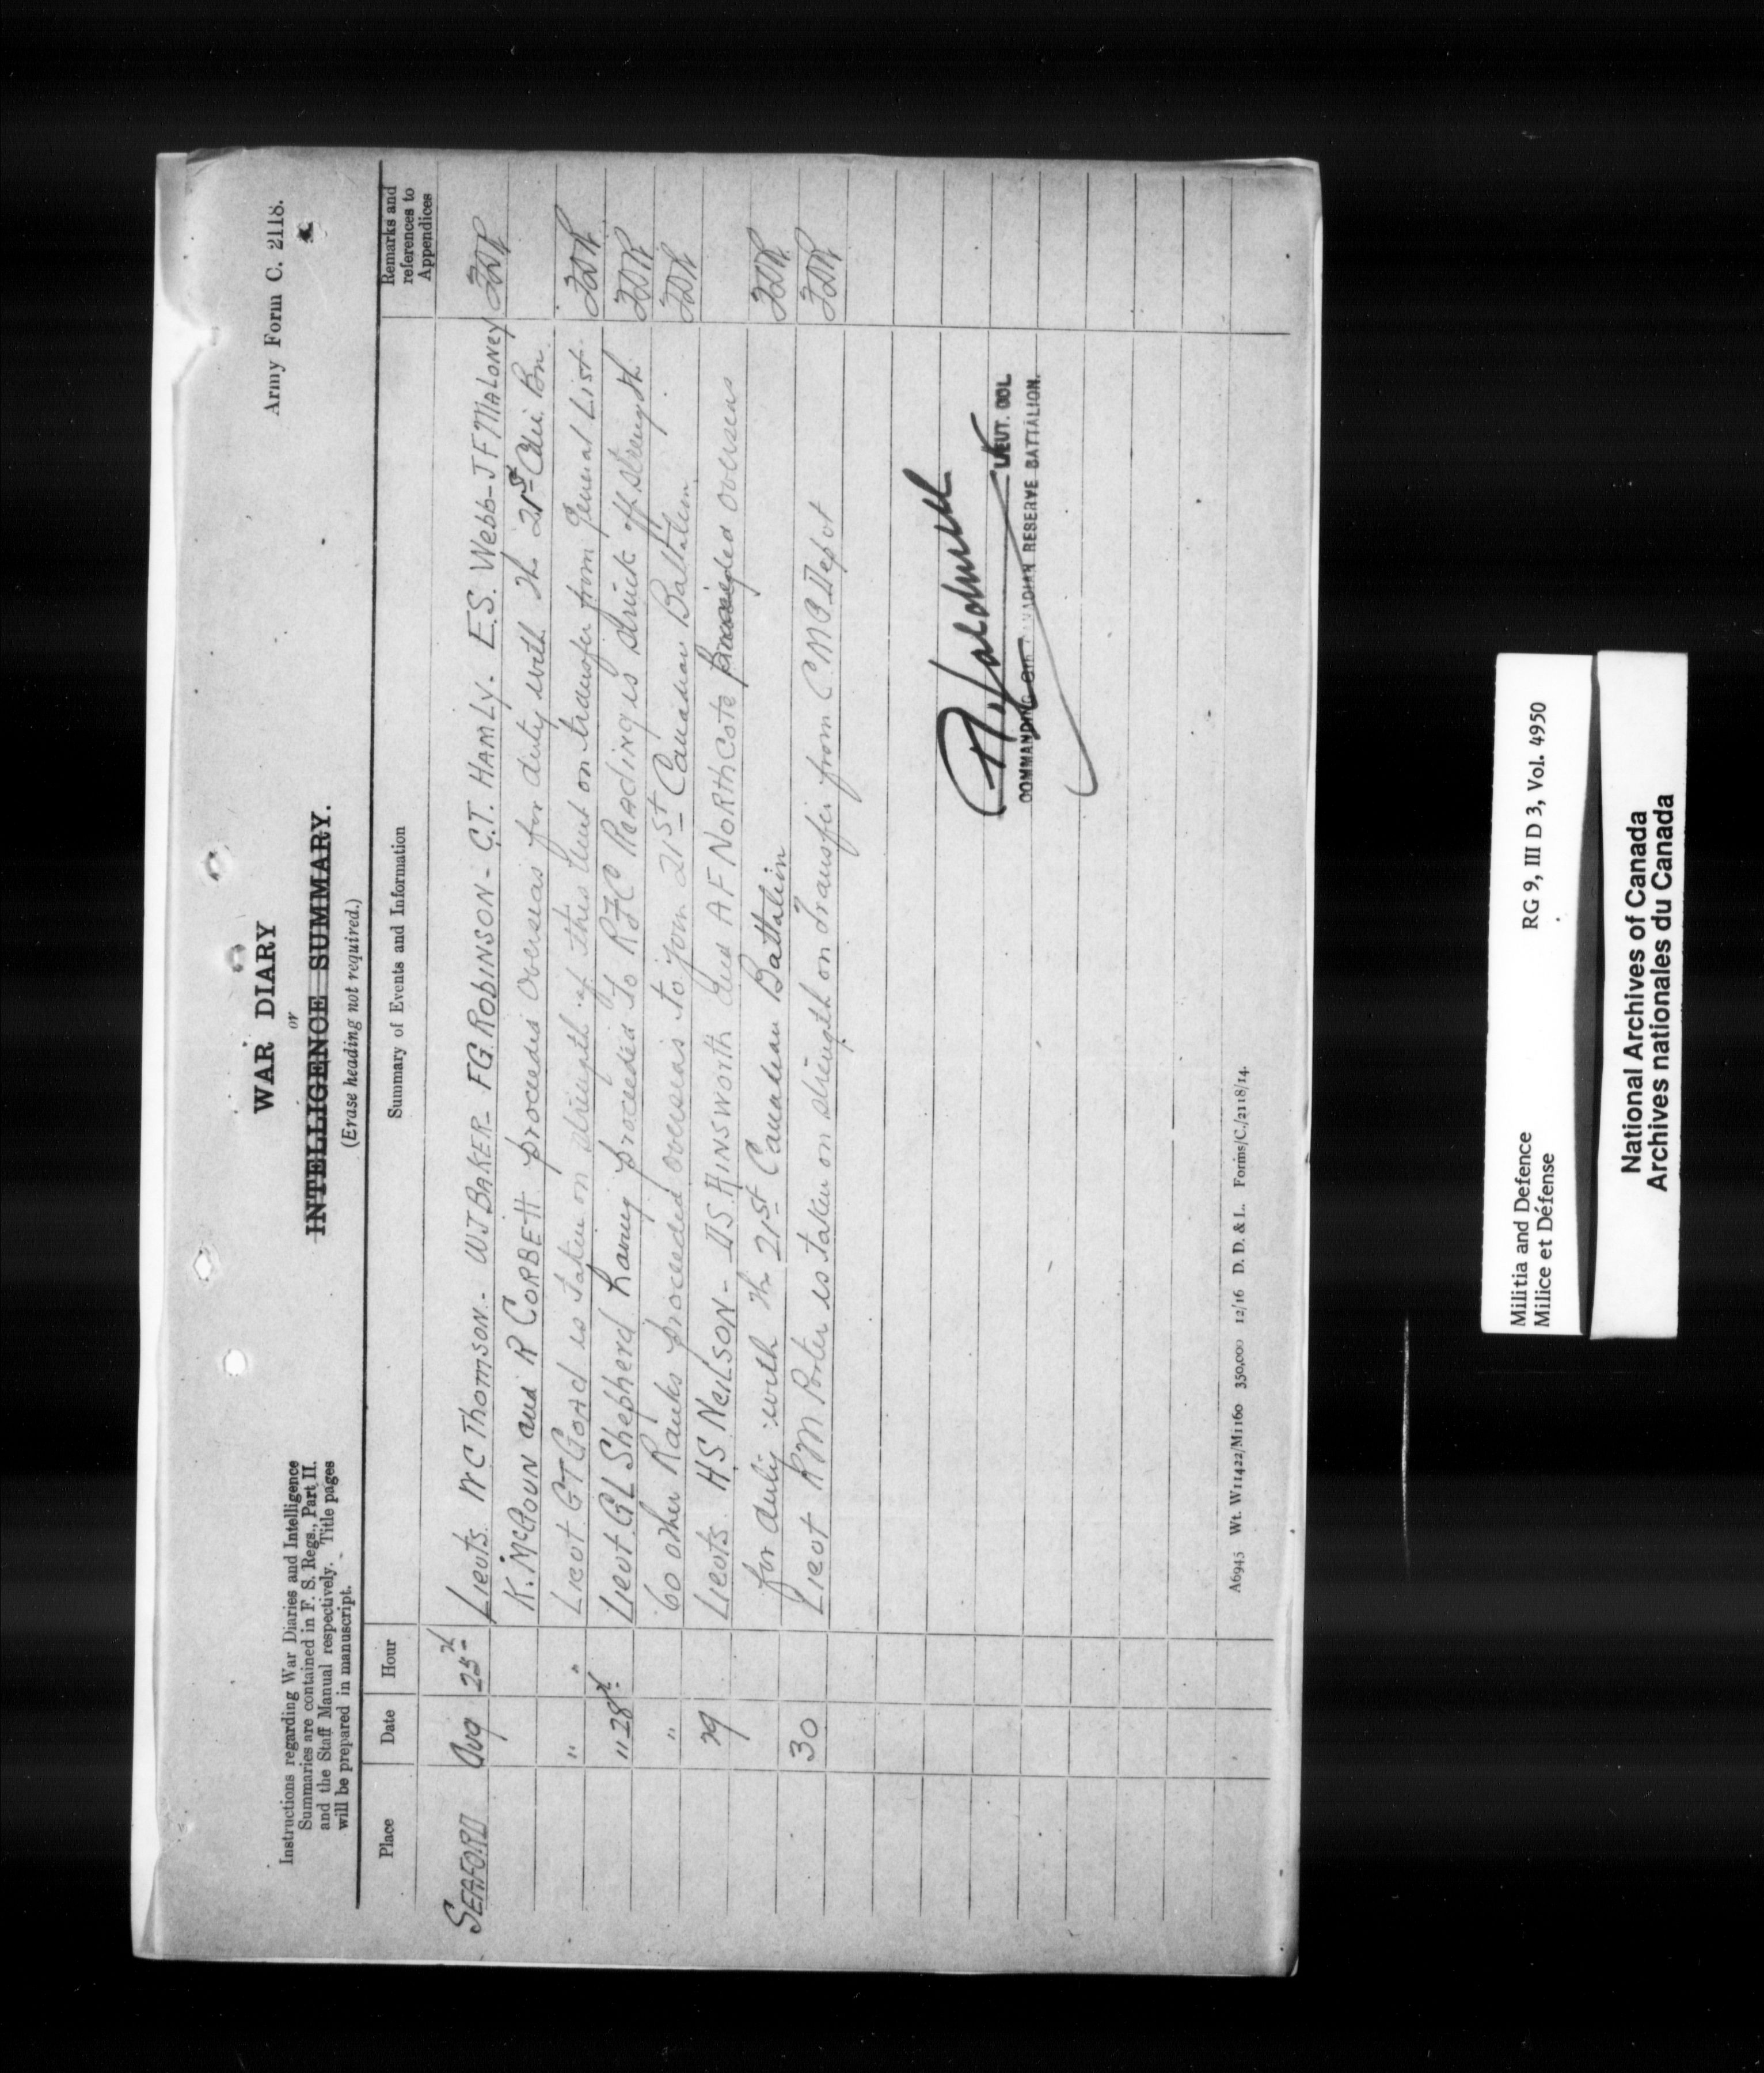 Army Form C. 2118.
WAR DIARY
or
INTELLIGENCE SUMMARY.
(Erase heading not required.)
Instructions regarding War Diaries and Intelligence
Summaries are contained in F. S. Regs., Part II.
and the Staff Manual respectively. Title pages
will be prepared in manuscript.
Place Date Hour Summary of Events and Information Remarks and references to Appendices
SEAFORD Aug 25th Lieuts. WC Thomson - WJ BAKER - FG ROBINSON - C.T. HAMLY. E.S. Webb - JF MALONEY
K. McGOUN and R CORBETT proceeded overseas for duty with the 21st Cdn. Bn.
" " Lieut. GT GOAD is taken on strength of this Unit on transfer from General List.
" 28th Lieut. GL Shepherd having proceeded to RFC READING is struck off strength
" 60 other Ranks proceeded overseas to join 21st Canadian Battalion
29 Lieuts. HS NEILSON - DS AINSWORTH and AF NORTHCOTE proceeded overseas
for duty with the 21st Canadian Battalion
30 Lieut RM Porter is taken on strength on transfer from CMG Depot
LIEUT. COL.
COMMANDING CANADIAN RESERVE BATTALION.
A6945 Wt. W11422/M1160 350,000 12/16 D. D. & L. Forms/C./2118/14.
Militia and Defence RG 9, III D 3, Vol. 4950
Milice et Défense
National Archives of Canada
Archives nationales du Canada